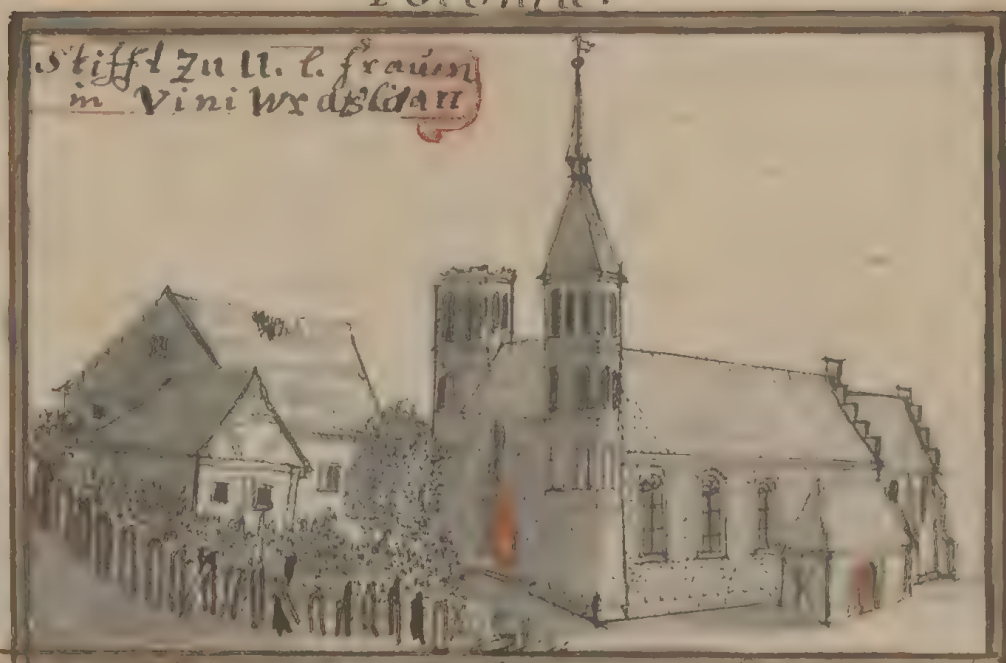 Stifft Zu U. l. frauen
in Vini Wradslau